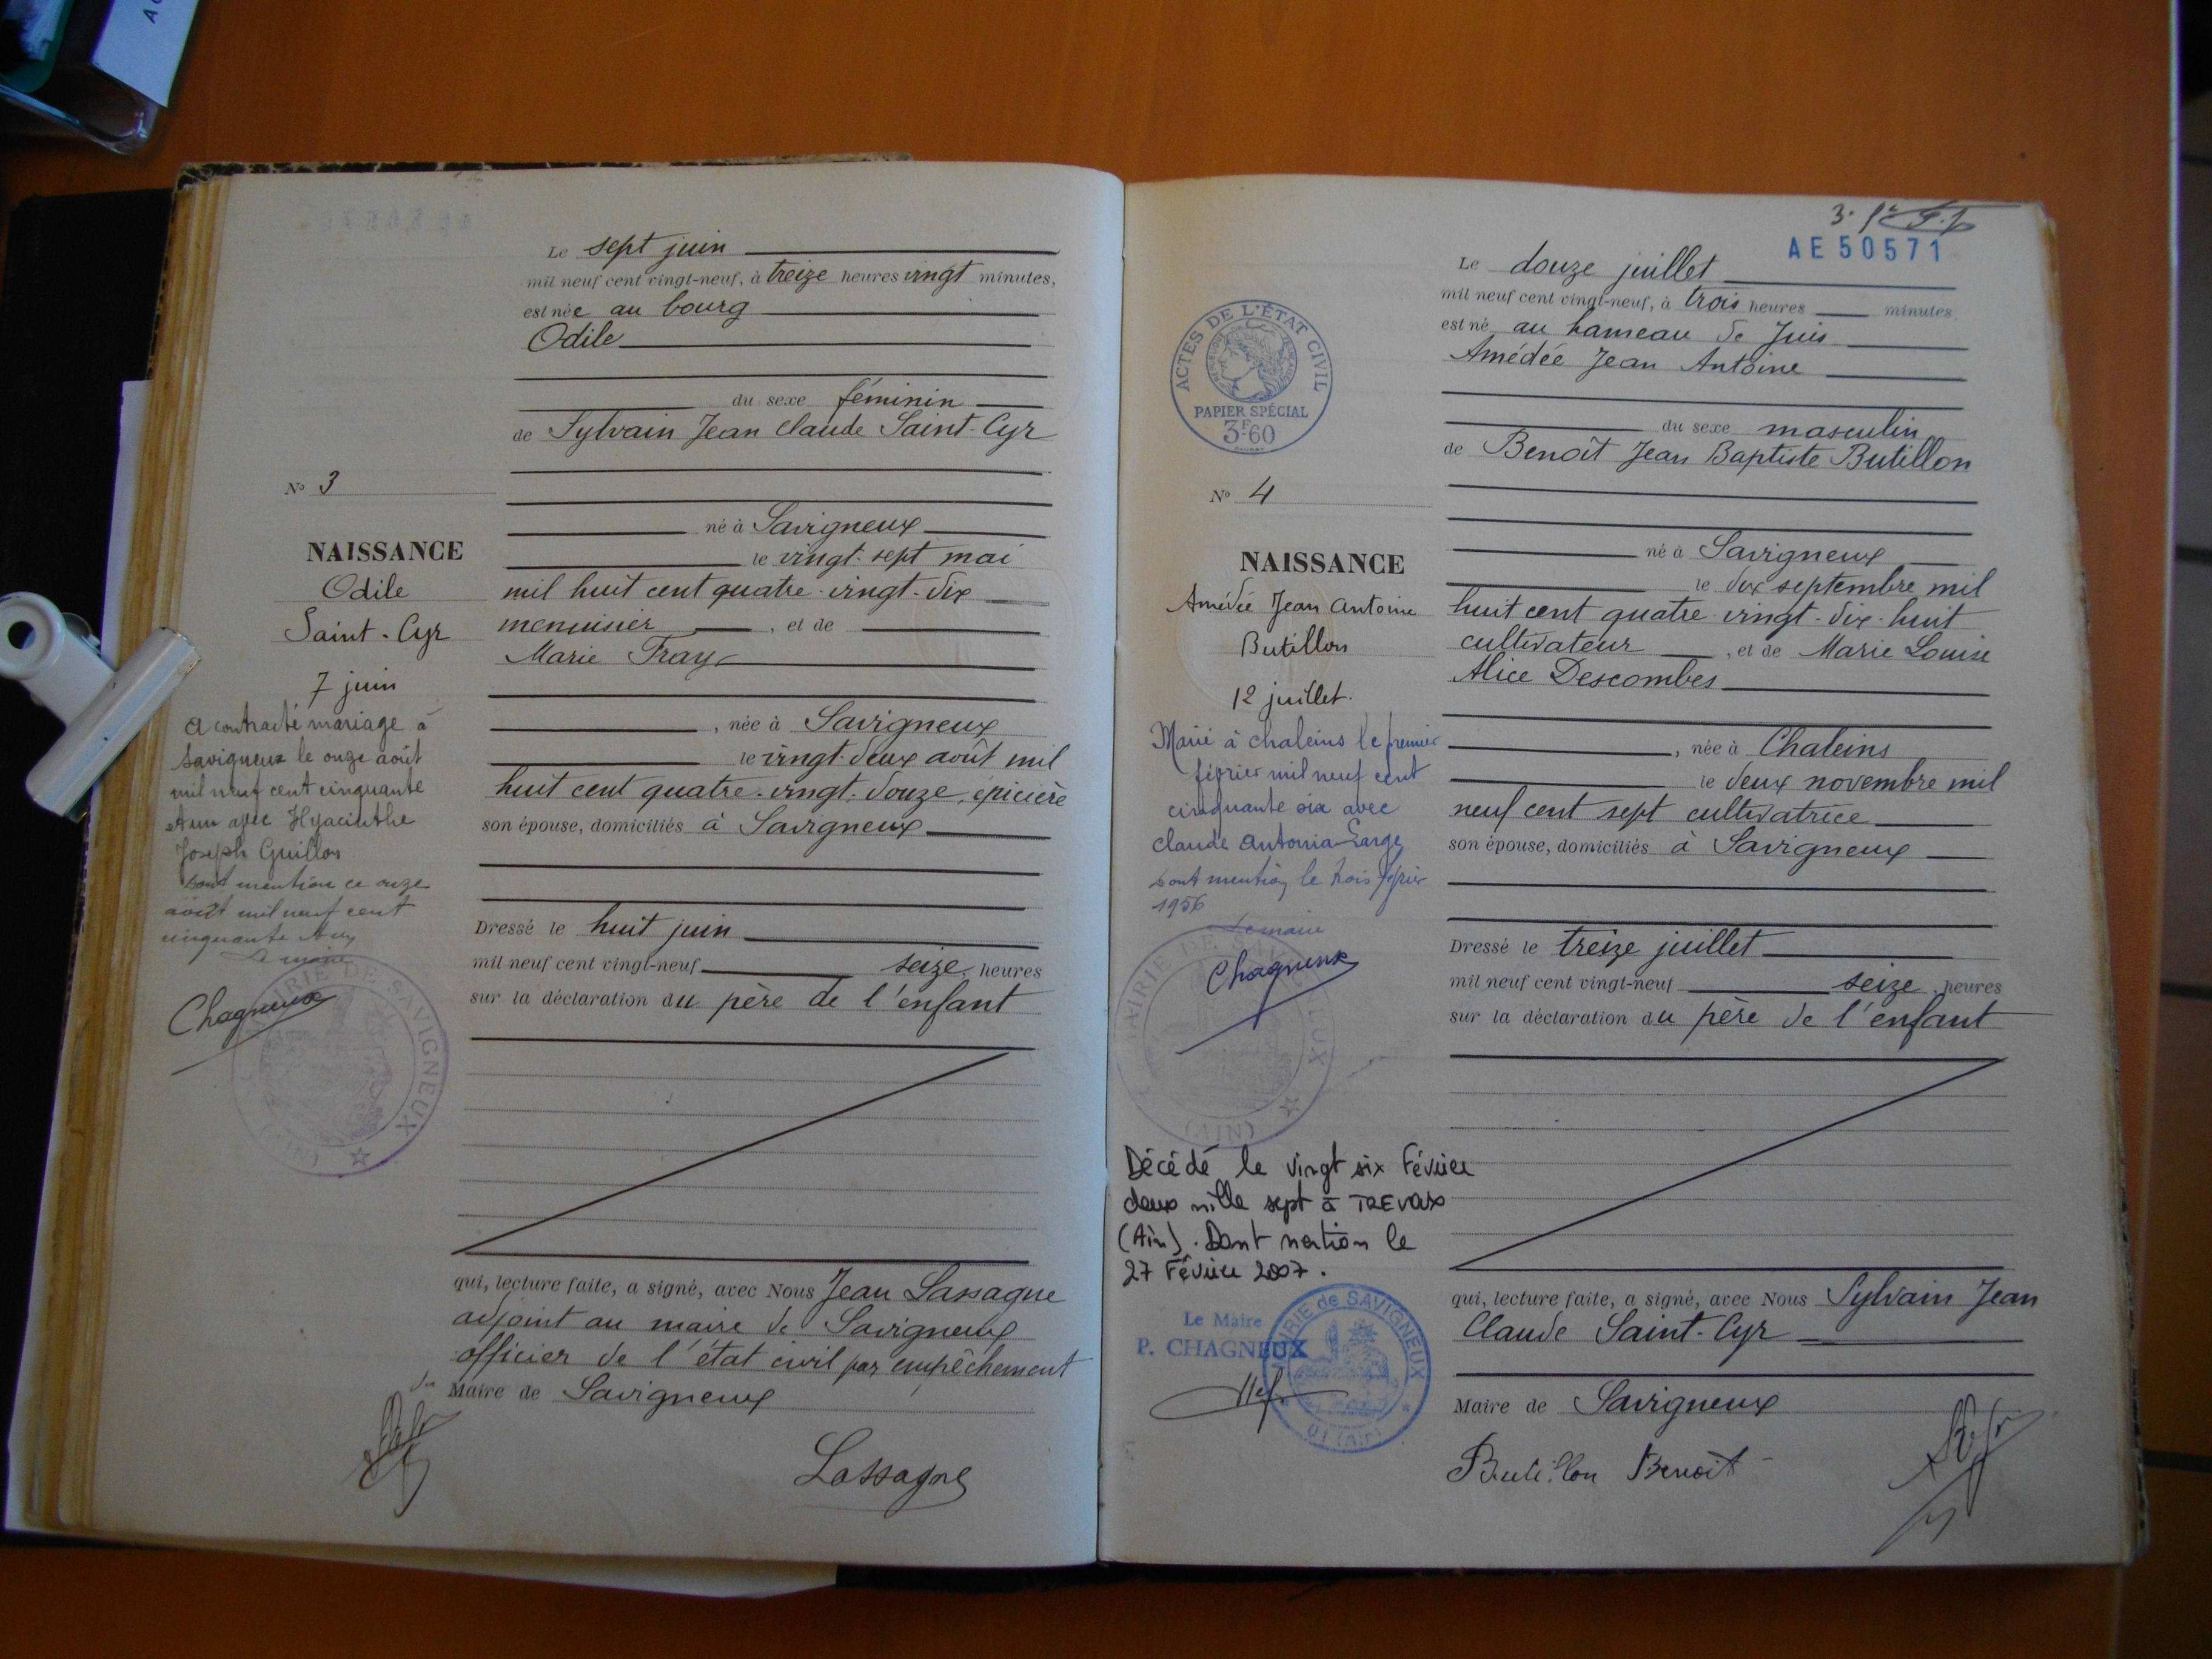 Le sept juin
mil neuf cent vingt-neuf, à treize heures vingt minutes,
est née au bourg
Odile
du sexe féminin
de Sylvain Jean Claude Saint-Cyr
né à Savigneux
le vingt-sept mai
mil huit cent quatre-vingt-dix
menuisier, et de
Marie Fray
, née à Savigneux
le vingt-deux août mil
huit cent quatre-vingt-douze, épicière
son épouse, domiciliés à Savigneux
Dressé le huit juin
mil neuf cent vingt-neuf seize heures
sur la déclaration du père de l'enfant
qui, lecture faite, a signé, avec Nous Jean Lassagne
adjoint au maire de Savigneux
officier de l'état civil par empêchement
du Maire de Savigneux
Lassagne
N° 3
NAISSANCE
Odile
Saint-Cyr
7 juin
A contracté mariage à
Savigneux le onze août
mil neuf cent cinquante
et un avec Hyacinthe
Joseph Guillon
Dont mention ce onze
août mil neuf cent
cinquante et un
Le maire
Chagneux
MAIRIE DE SAVIGNEUX
(AIN)
AE 50571
Le douze juillet
mil neuf cent vingt-neuf, à trois heures minutes,
est né au hameau de Juis
Amédée Jean Antoine
du sexe masculin
de Benoît Jean Baptiste Butillon
né à Savigneux
le dix septembre mil
huit cent quatre-vingt-dix-huit
cultivateur, et de Marie Louise
Alice Descombes
, née à Chaleins
le deux novembre mil
neuf cent sept cultivatrice
son épouse, domiciliés à Savigneux
Dressé le treize juillet
mil neuf cent vingt-neuf seize heures
sur la déclaration du père de l'enfant
qui, lecture faite, a signé, avec Nous Sylvain Jean
Claude Saint-Cyr
Maire de Savigneux
Butillon Benoît
ACTES DE L'ÉTAT CIVIL
PAPIER SPÉCIAL
3F60
N° 4
NAISSANCE
Amédée Jean Antoine
Butillon
12 juillet.
Marié à Chaleins le premier
février mil neuf cent
cinquante six avec
Claude Antonia Large
Dont mention, le trois février
1956
Le maire
Chagneux
MAIRIE DE SAVIGNEUX
(AIN)
Décédé le vingt six Février
deux mille sept à TREVOUX
(Ain). Dont mention le
27 Février 2007.
Le Maire
P. CHAGNEUX
MAIRIE de SAVIGNEUX
01 (Ain)